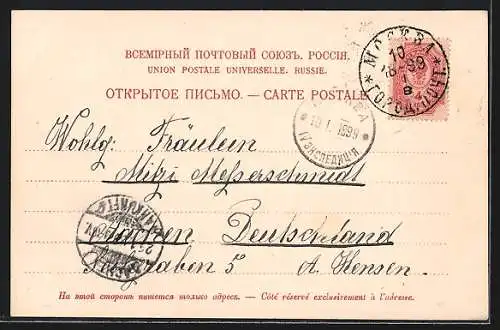 ВСЕМІРНЫЙ ПОЧТОВЫЙ СОЮЗЪ. РОССІЯ.
UNION POSTALE UNIVERSELLE. RUSSIE.
ОТКРЫТОЕ ПИСЬМО. — CARTE POSTALE.
МОСКВА
10
1899
ГОРОД. ПОЧТ.
10 I. 1899
IV ЭКСПЕДИЦІЯ
Wohlg: Fräulein
Mizi Messerschmidt
Deutschland
graben 5 A. Hensen.
На этой сторонѣ пишется только адресъ. — Côté réservé exclusivement à l'adresse.